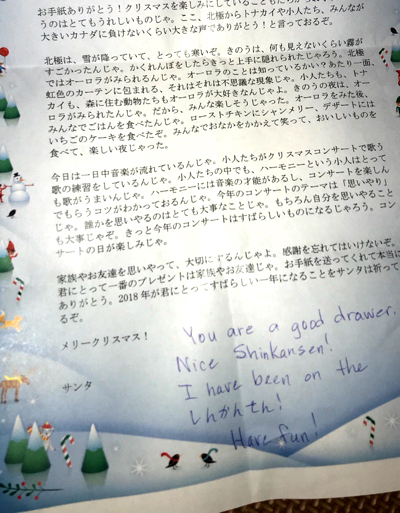 お手紙ありがとう！クリスマスを楽しみにしていることも
うのはとてもうれしいものじゃ。ここ、北極からトナカイや小人たち、みんなが
大きいカナダに負けないくらい大きな声でありがとう！と言っておるぞ。
北極は、雪が降っていて、とっても寒いぞ。きのうは、何も見えないくらい霧が
すごかったんじゃ。かくれんぼをしたらきっと上手に隠れられたじゃろう。北極
ではオーロラがみられるんじゃ。オーロラのことは知っているかい？あたり一面、
虹色のカーテンに包まれる、それはそれは不思議な現象じゃ。小人たちも、トナ
カイも、森に住む動物たちもオーロラが大好きなんじゃよ。きのうの夜は、オー
ロラがみられたんじゃ。だから、みんな楽しそうじゃった。オーロラをみた後、
みんなでごはんを食べたんじゃ。ローストチキンにシャンメリー。デザートには
いちごのケーキを食べたぞ。みんなでおなかをかかえて笑って、おいしいものを
食べて、楽しい夜じゃった。
今日は一日中音楽が流れているんじゃ。小人たちがクリスマスコンサートで歌う
歌の練習をしているんじゃ。小人たちの中でも、ハーモニーという小人はとって
も歌がうまいんじゃ。ハーモニーには音楽の才能があるし、コンサートを楽しん
でもらうコツがわかっておるんじゃ。今年のコンサートのテーマは「思いやり」
じゃ。誰かを思いやるのはとても大事なことじゃ。もちろん自分を思いやること
も大事じゃぞ。きっと今年のコンサートはすばらしいものになるじゃろう。コン
サートの日が楽しみじゃ。
家族やお友達を思いやって、大切にするんじゃよ。感謝を忘れてはいけないぞ。
君にとって一番のプレゼントは家族やお友達じゃ。お手紙を送ってくれて本当に
ありがとう。2018年が君にとってすばらしい一年になることをサンタは祈って
るぞ。
メリークリスマス！
サンタ
You are a good drawer.
Nice Shinkansen!
I have been on the
しんかんせん!
Have fun!